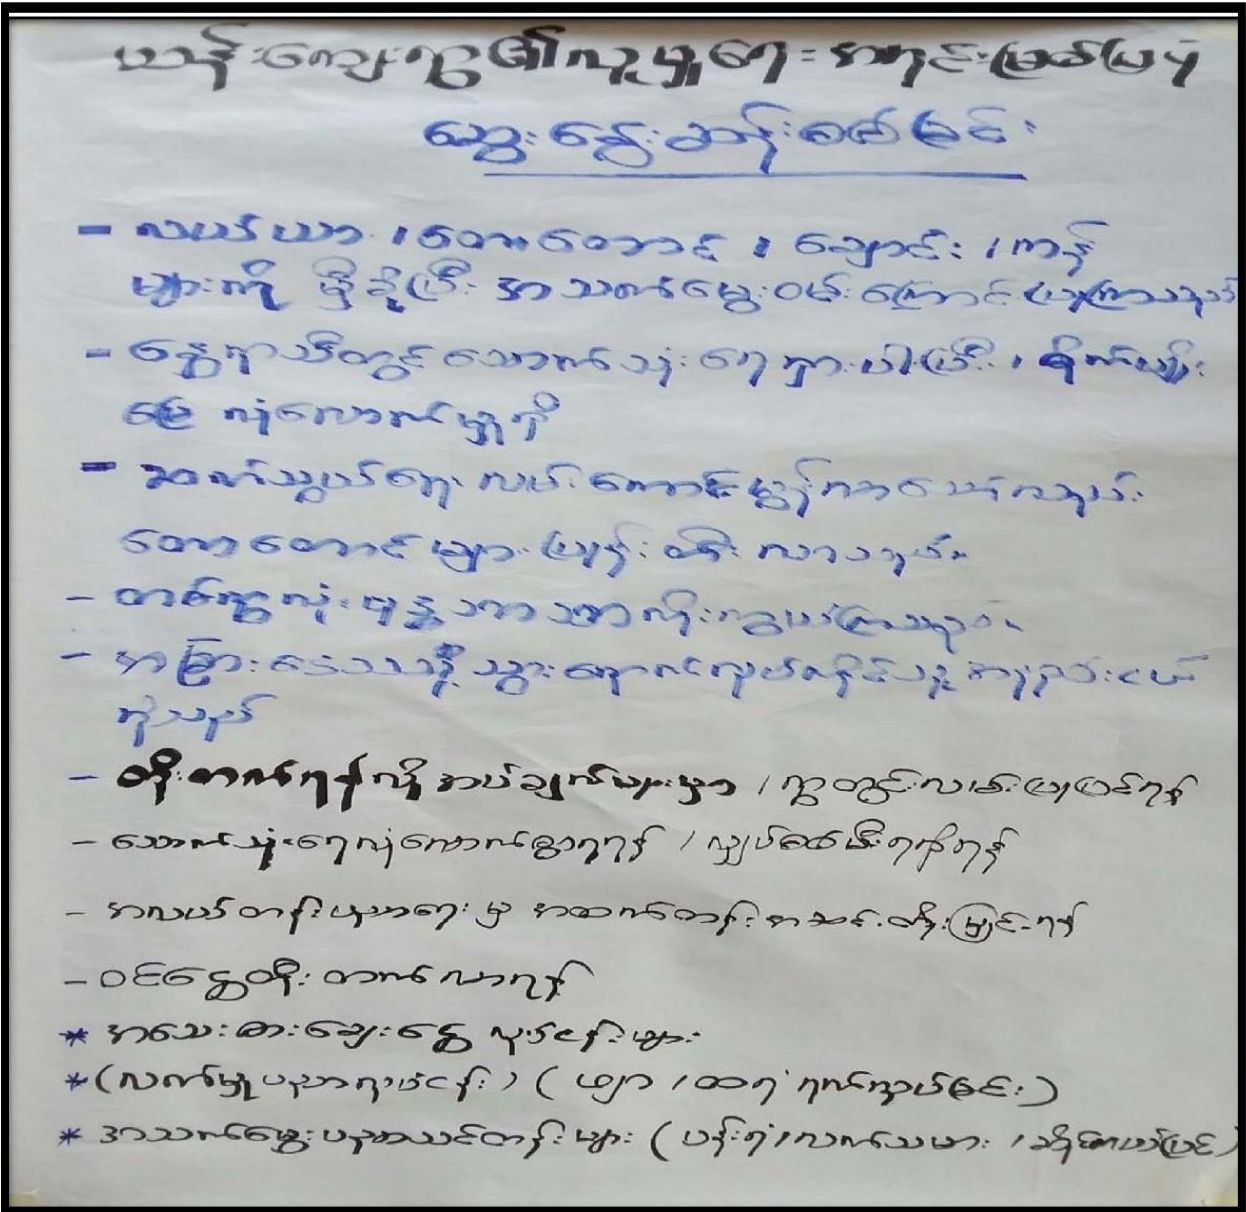 ယာန်းကျေးရွာ၏လူမှုရေး အရင်းမြစ်ပြပုံ
ဆွေးနွေးဆန်းစစ်ခြင်း
- လယ်ယာ ၊ တောတောင် ၊ ချောင်း ၊ ကန်
များကို မှီခိုပြီး အသက်မွေးဝမ်းကြောင်းပြုကြသည်
- နွေရာသီတွင် သောက်သုံးရေရှားပါးပြီး ၊ စိုက်ပျိုး
မြေ လုံလောက်မှုရှိ
- ဆက်သွယ်ရေး လမ်းကောင်းမွန်
တောတောင်များ ပြုန်းတီးလာသည်။
- တစ်ရွာလုံး ဗုဒ္ဓဘာသာကိုးကွယ်ကြသည်။
- အခြားဒေသသို့ သွားရောက်လုပ်ကိုင်သူ အနည်းငယ်
ရှိသည်
- တိုးတက်ရန်လိုအပ်ချက်များမှာ ၊ ရွာတွင်းလမ်းပြုပြင်ရန်
- သောက်သုံးရေလုံလောက်စွာရရန် ၊ လျှပ်စစ်မီးရရှိရန်
- အလယ်တန်းပညာရေးမှ အထက်တန်းအဆင့်တိုးမြှင့်ရန်
- ဝင်ငွေတိုးတက်လာရန်
* အသေးစားချေးငွေ လုပ်ငန်းများ
* (လက်မှုပညာလုပ်ငန်း) ( ဖျာ ၊ ထရံ ရက်လုပ်ခြင်း )
* အသက်မွေးပညာသင်တန်းများ ( ပန်းရံ ၊ လက်သမား ၊ ဆိုင်ကယ်ပြင် )